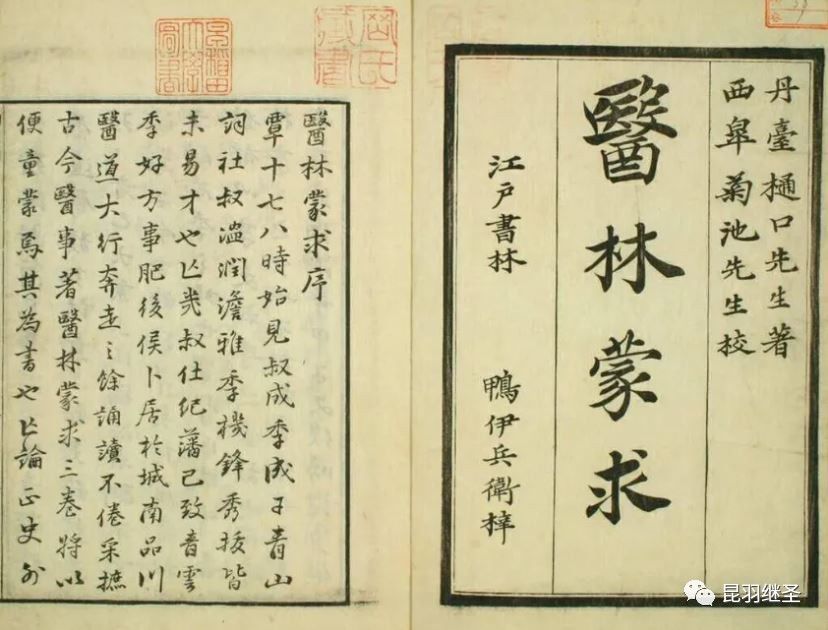 丹臺樋口先生著
西皐菊池先生校
醫林蒙求
江戸書林 鴨伊兵衛梓
醫林蒙求序
覃十七八時始見叔成季成于青山
詞社叔溫潤澹雅季機鋒秀拔皆
未易才也亡幾叔仕紀藩已致青雲
季好方事肥後侯卜居於城南品川
醫道大行奔走之餘誦讀不倦采摭
古今醫事著醫林蒙求三卷將以
便童蒙焉其為書也亡論正史外
昆羽继圣